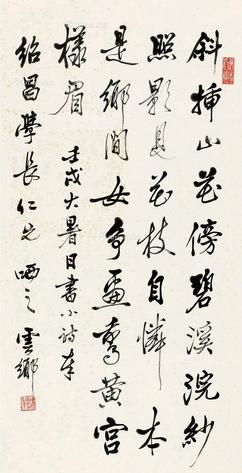 斜插山花傍碧溪浣紗
照影見花枝自憐本
是鄉間女争畫黃宮
樣眉 壬戌大暑日書小詩奉
紹昌學長仁兄哂之 雲鄉